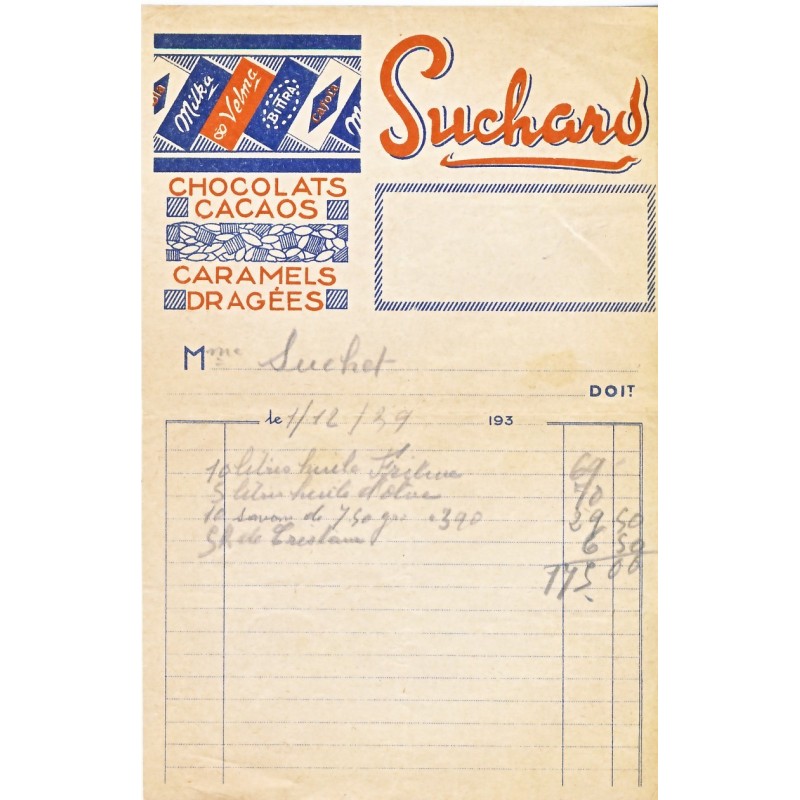 Milka
Velma
BITTRA
Cafola
Suchard
CHOCOLATS
CACAOS
CARAMELS
DRAGÉES
Mme Suchet
DOIT
le 1/12/39 193
10 litres huile 69
5 litres huile d'olive 70
10 savons de 750 grs 390 29 50
5 6 50
175 00